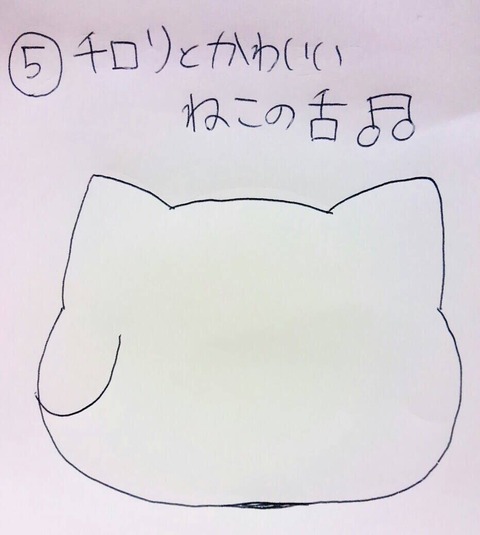 ⑤ チロリとかわいい
ねこの舌♫